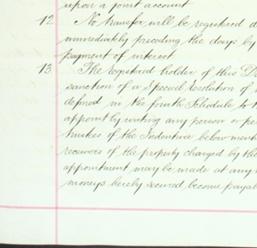 upon a joint account
12. No transfer will be registered d
immediately preceding the days by
payment of interest
13. The registered holder of this D
sanction of a Special Resolution of
defined in the fourth Schedule to t
appoint by writing any person or pe
trustee of the Indenture below ment
receivers of the property charged by the
appointment may be made at any
moneys hereby secured become payab